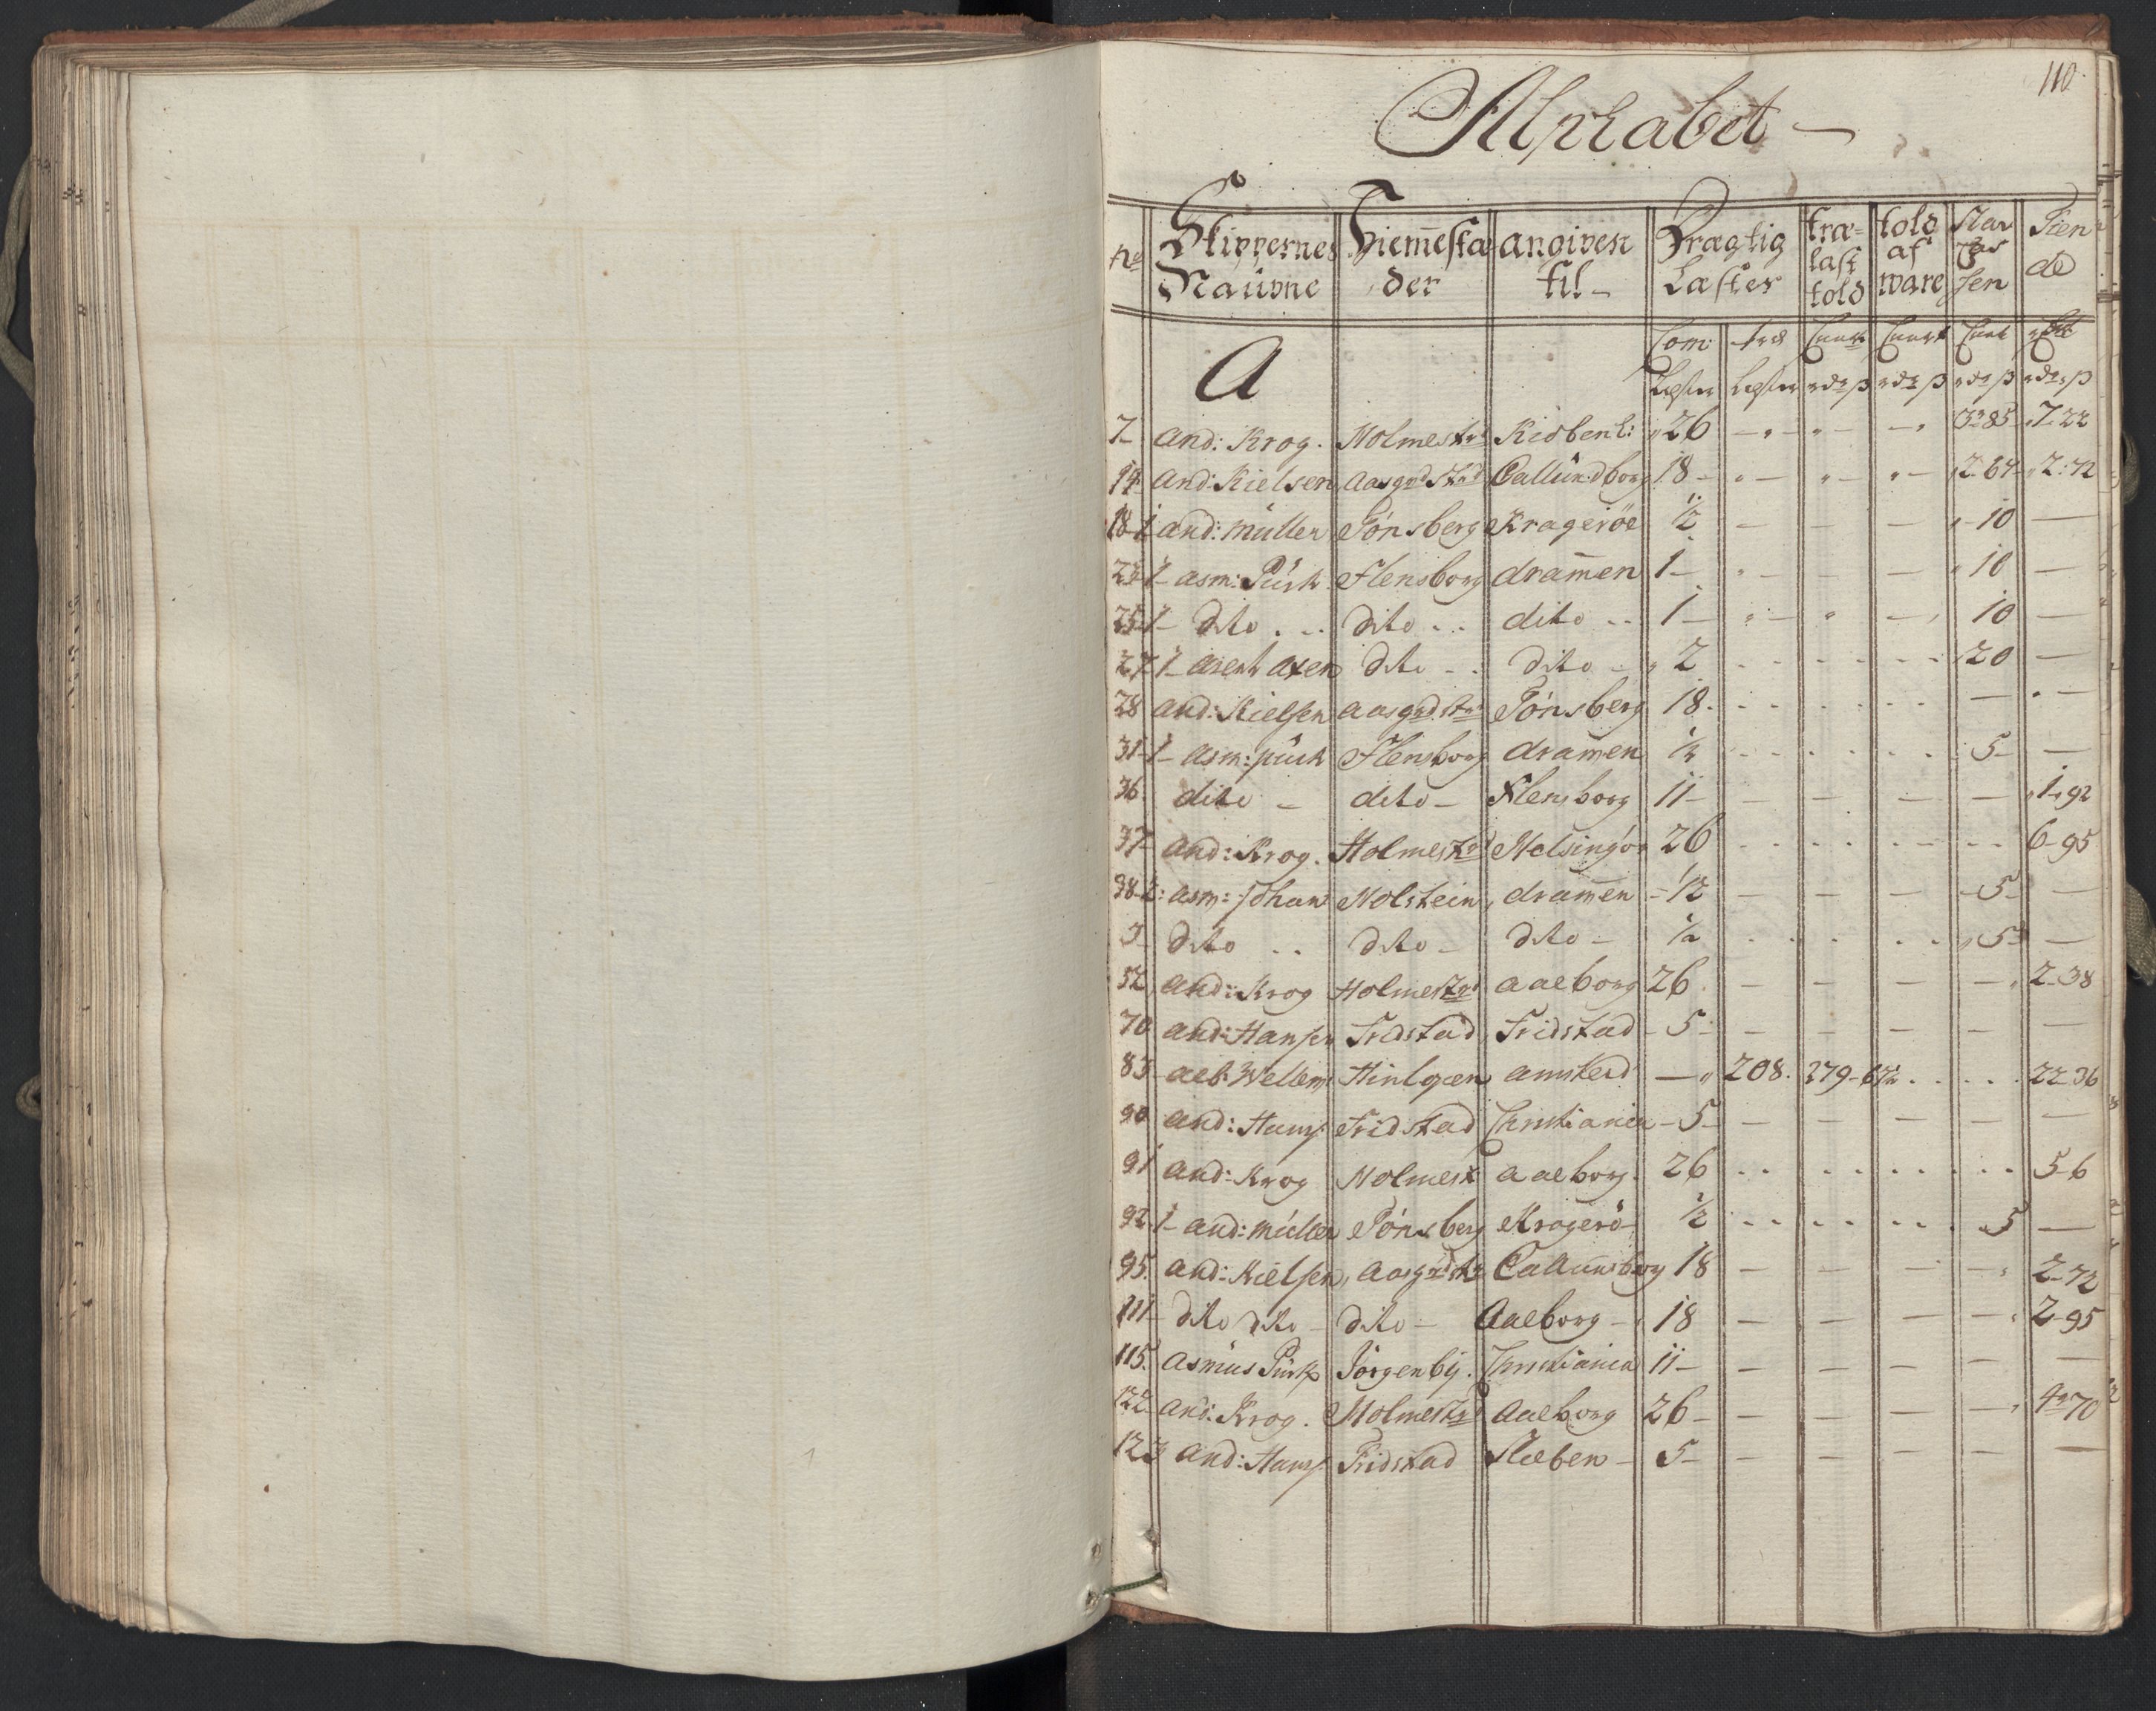 110.
Alphabet —
No | Skippernes Naufne | Hiemmestæder | angiven til — | Drægtig Læster | træ= last told | told af ware | | Tiende
A | Com: Læster | træ Læster | Curt rdr ß | Curt rdr ß | Curt rdr ß | rdr ß
7 and: Krog. Holmestrd Kiøbenh: 26 — — — 3 85 7 22
14 and: Nielsen Aasgrdstrd Callundborg 18 — — — 2 64 2: 72
18-1 and: müller Tónsberg Krageröe ½ — — — 10 —
23-1 asm: Púrk Flensborg dramen 1 — — — 10 —
25-1 dito dito dito 1 — — — 10 —
27-1 arent axen dito dito 2 20 —
28 and: Nielsen aasgrdstrd Tónsberg 18. — —
31-1 asm: púrk Flensborg dramen ½ 5 —
36. dito — dito — Flensborg 11 — — — — 1 92
37 and: Krog. Holmestrd Helsingór 26 6-95
38-1: asm: Johan Holstein dramen ½ — — — 5 —
dito dito — dito — ½ 5 —
52 and: Krog Holmestrd aalborg 26 — — — — 2-38
70 and: Hansen Fridstad Fridstad 5 — — — — —
83 aeb: Wellem Hinlopen amsterd — 208. 279-67½ 22 36
90 and: Hans Fridstad Christiania 5 — — — — —
91 and: Krog Holmest aalborg. 26 5-6
92-1 and: múller Tónsberg Kragerö ½ 5 —
95. and: Nielsen, Aasgrdstr Callundborg 18 — — — — 2-72
111 dito dito dito — Aalborg 18 — — — — 2-95
115. Asmús Púrk Jórgenbÿ. Christiania 11 — — — — —
122 and: Krog. Holmestrd Aalborg 26 — — — — 4 70
123 and: Hans Fridstad 5 — — — — —